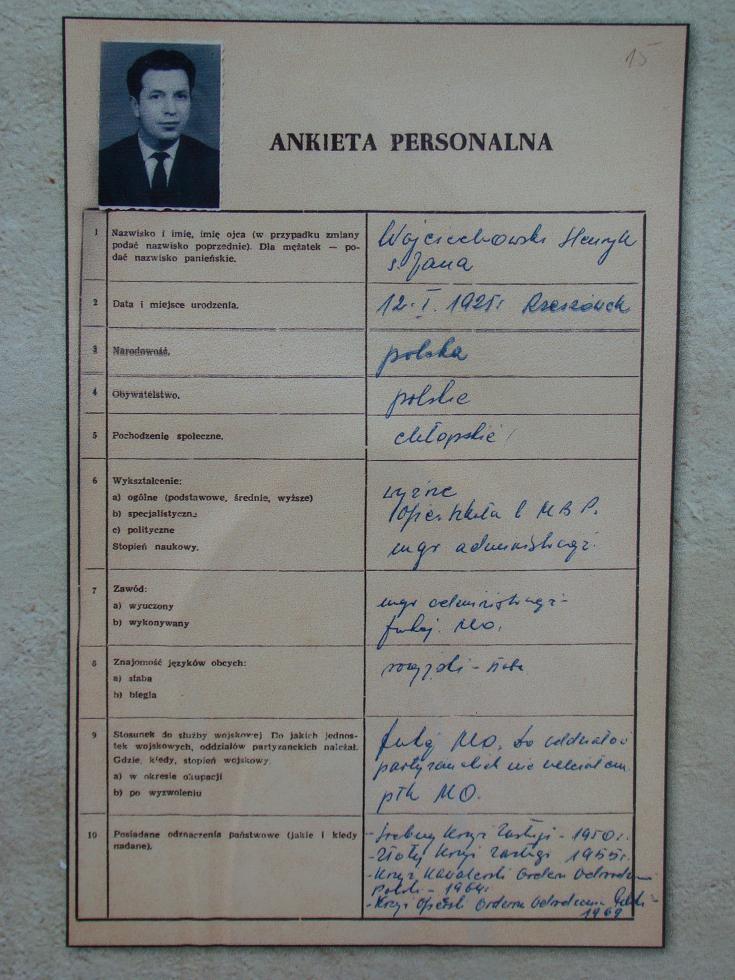 15
ANKIETA PERSONALNA
1 Nazwisko i imię, imię ojca (w przypadku zmiany
podać nazwisko poprzednie). Dla mężatek — po-
dać nazwisko panieńskie.
Wojciechowski Henryk
s. Jana
2 Data i miejsce urodzenia.
12. I. 1925r Rzeszówek
3 Narodowość.
polska
4 Obywatelstwo.
polskie
5 Pochodzenie społeczne.
chłopskie
6 Wykształcenie:
a) ogólne (podstawowe, średnie, wyższe)
b) specjalistyczne
c) polityczne
Stopień naukowy.
wyższe
Ofic. Szkoła MBP.
mgr administracji.
7 Zawód:
a) wyuczony
b) wykonywany
mgr administracji-
funkcj. MO.
8 Znajomość języków obcych:
a) słaba
b) biegła
rosyjski - słabo
9 Stosunek do służby wojskowej Do jakich jednos-
tek wojskowych, oddziałów partyzanckich należał.
Gdzie, kiedy, stopień wojskowy.
a) w okresie okupacji
b) po wyzwoleniu
funkcj MO, do oddziałów
partyzanckich nie należałem
płk MO.
10 Posiadane odznaczenia państwowe (jakie i kiedy
nadane).
- Srebrny Krzyż Zasługi - 1950r.
- Złoty Krzyż Zasługi 1955r.
- Krzyż Kawalerski Orderu Odrodzenia
Polski - 1964r
- Krzyż Oficerski Orderu Odrodzenia Polski -
1969